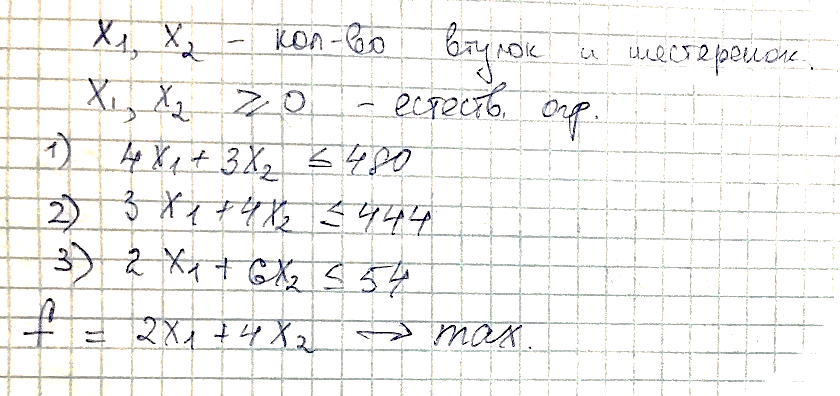 X₁, X₂ – кол-во втулок и шестеренок.
X₁, X₂ ≥ 0 – естеств. огр.
1) 4X₁ + 3X₂ ≤ 480
2) 3X₁ + 4X₂ ≤ 444
3) 2X₁ + 6X₂ ≤ 54
f = 2X₁ + 4X₂ → max.